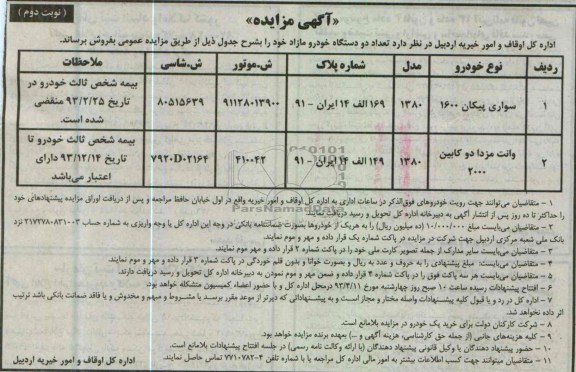 «آگهی مزایده»
( نوبت دوم )
اداره کل اوقاف و امور خیریه اردبیل در نظر دارد تعداد دو دستگاه خودرو مازاد خود را بشرح جدول ذیل از طریق مزایده عمومی بفروش برساند.
ردیف نوع خودرو مدل شماره پلاک ش.موتور ش.شاسی ملاحظات
۱ سواری پیکان ۱۶۰۰ ۱۳۸۰ ۱۶۹ الف ۱۴ ایران - ۹۱ ۹۱۱۲۸۰۱۳۹۰۰ ۸۰۵۱۵۶۳۹ بیمه شخص ثالث خودرو در
تاریخ ۹۳/۲/۲۵ منقضی
شده است.
۲ وانت مزدا دو کابین
۲۰۰۰
۱۳۸۰ ۱۴۹ الف ۱۴ ایران - ۹۱ ۴۱۰۰۴۲ ۷۹۲۰D۰۲۱۶۴ بیمه شخص ثالث خودرو تا
تاریخ ۹۳/۱۲/۱۴ دارای
اعتبار می‌باشد
۱ – متقاضیان می‌توانند جهت رویت خودروهای فوق‌الذکر در ساعات اداری به اداره کل اوقاف و امور خیریه واقع در اول خیابان حافظ مراجعه و پس از دریافت اوراق مزایده پیشنهادهای خود
را حداکثر تا ده روز پس از انتشار آگهی به دبیرخانه اداره کل تحویل و رسید دریافت نمایند.
۲ – متقاضیان می‌بایست مبلغ ۱۰/۰۰۰/۰۰۰ (ده میلیون ریال) را به هریک از خودروها بصورت ضمانتنامه بانکی در وجه این اداره کل یا وجه واریزی به شماره حساب ۲۱۷۲۷۸۰۸۳۱۰۰۳ نزد
بانک ملی شعبه مرکزی اردبیل جهت شرکت در مزایده در پاکت شماره یک قرار داده و مهر و موم نمایند.
۳ – متقاضیان می‌بایست سایر مدارک از جمله تصویر کارت ملی خود را در پاکت شماره ۲ قرار داده و مهر موم نمایند.
۴ – متقاضیان می‌بایست: مبلغ پیشنهادی را به حروف و عدد به ریال و بصورت خوانا و بدون قلم خوردگی در پاکت شماره ۳ قرار داده و مهر موم نمایند.
۵ – متقاضیان می‌بایست هر سه پاکت فوق را در پاکت شماره ۴ قرار داده و ضمن مهر و موم نمودن به دبیرخانه اداره کل تحویل و رسید دریافت دارند.
۶ – افتتاح پیشنهادات رسیده ساعت ۱۰ صبح روز چهارشنبه مورخ ۹۳/۴/۱۱ درمحل اداره کل و با حضور اعضاء کمیسیون متشکله خواهد بود.
۷ – اداره کل در رد و یا قبول کلیه پیشنهادات واصله مختار و مجاز است و به پیشنهاداتی که دیرتر از موعد مقرر برسد یا مشروط و مبهم و مخدوش و یا فاقد ضمانت بانکی باشد ترتیب
اثر داده نخواهد شد.
۸ – شرکت کارکنان دولت برای خرید یک خودرو در مزایده بلامانع است.
۹ – کلیه هزینه‌های جانبی (از جمله حق کارشناسی، هزینه آگهی و ...) بعهده برنده مزایده خواهد بود.
۱۰ – حضور پیشنهاد دهندگان یا وکیل قانونی پیشنهاد دهندگان (با ارائه وکالت نامه رسمی) در جلسه افتتاح پیشنهادات بلامانع است.
۱۱ – متقاضیان میتوانند جهت کسب اطلاعات بیشتر به امور مالی اداره کل مراجعه یا با شماره تلفن ۴-۷۷۱۰۷۸۲ تماس حاصل نمایند.
اداره کل اوقاف و امور خیریه اردبیل